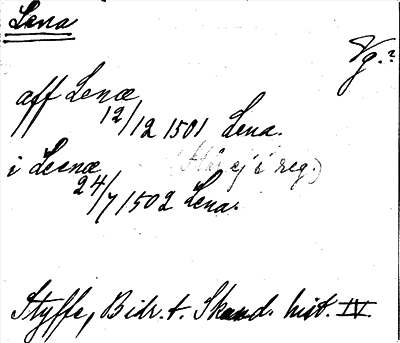 Lena
Vg.?
aff Lenæ
12/12 1501 Lena.
i Leenæ (Står ej i reg.)
24/7 1502 Lena.
Styffe, Bidr. t. Skand. hist. IV.